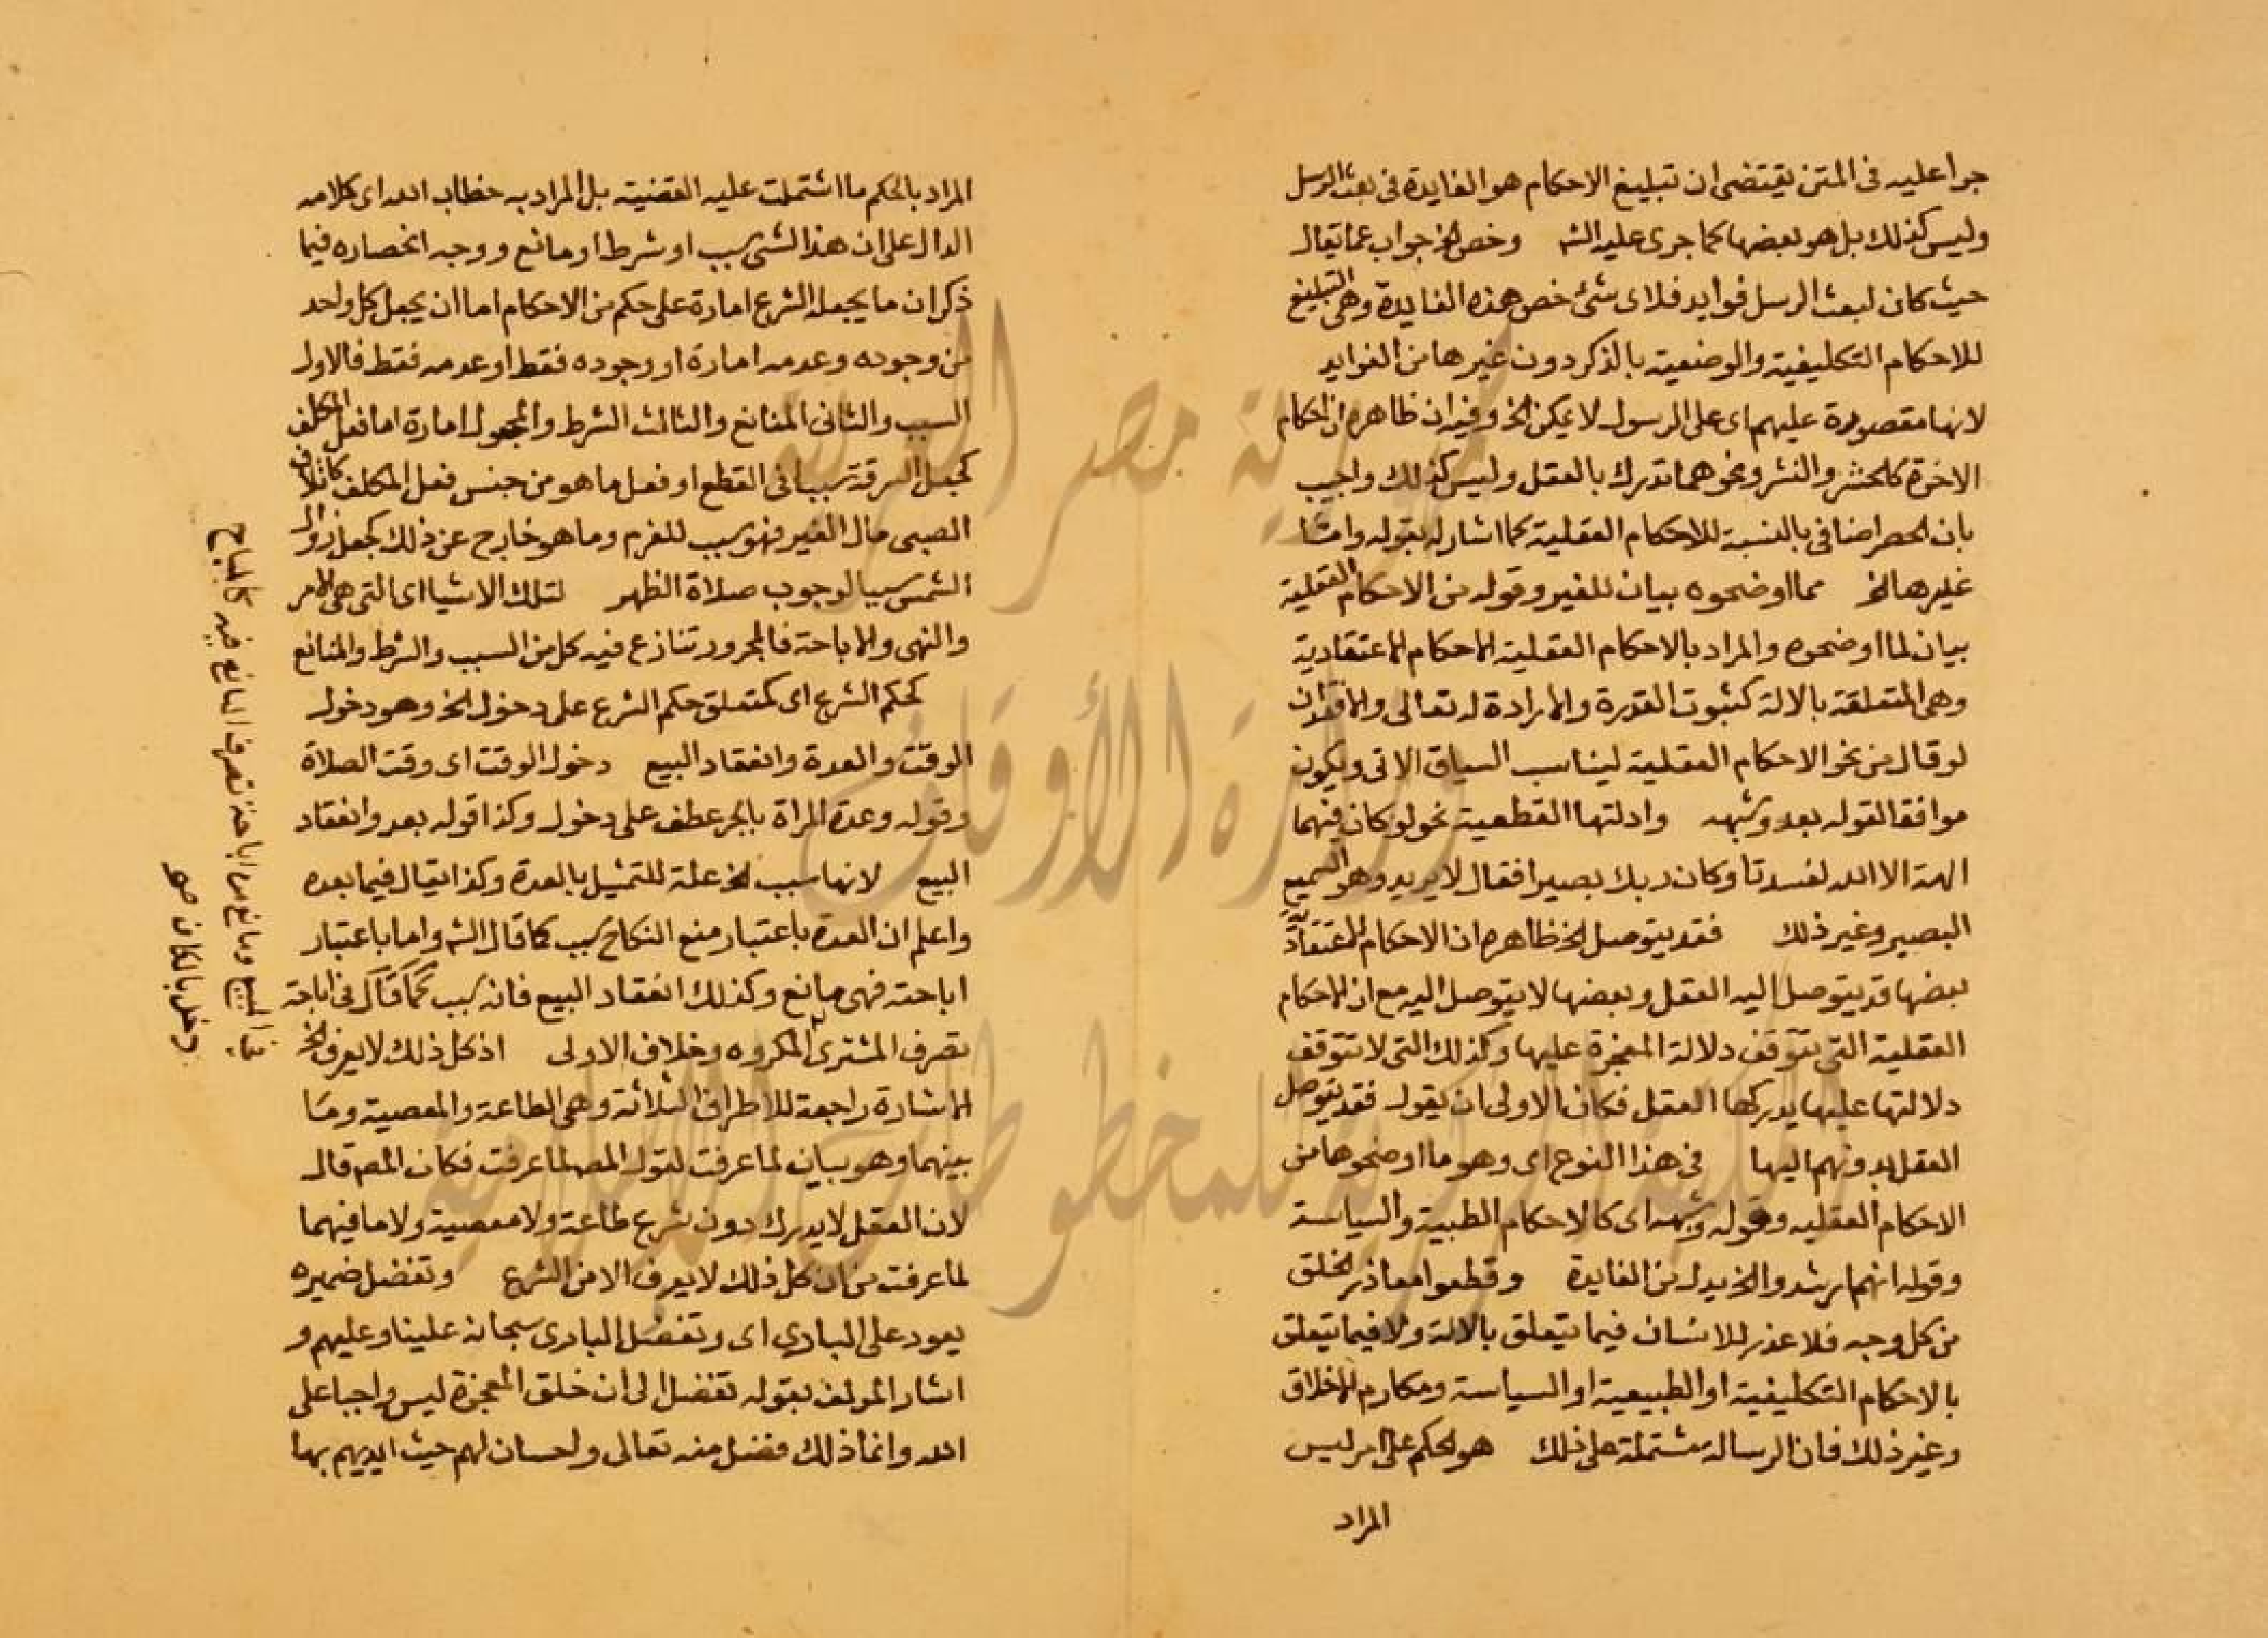 جرا عليه فى المتن يقتضى ان تبليغ الاحكام هو الفايدة فى بعث الرسل
وليس كذلك بل هو بعضها كما جرى عليه الشه وخص الخ جواب عما يقال
حيث كان لبعث الرسل فوايد فلاى شئ خص هذه الفايدة وهى التبليغ
للاحكام التكليفية والوضعية بالذكر دون غيرها من الفوايد
لانها مقصورة عليهم اى على الرسول لا يمكن الخ وفيه ان ظاهره ان احكام
الاخرة كالحشر والنشر ونحوهما تدرك بالعقل وليس كذلك واجيب
بان الحصر اضافى بالنسبة للاحكام العقلية كما اشار له بقوله وامتا
غيرها الخ مما اوضحوه بيان للغير وقوله من الاحكام العقلية
بيان لما اوضحوه والمراد بالاحكام العقلية الاحكام الاعتقادية
وهى المتعلقة بالالة كثبوت القدرة والارادة له تعالى
لو قال من نحو الاحكام العقلية ليناسب السياق الاتى ويكون
موافقا لقوله بعد وشبهه وادلتها القطعية نحو لو كان فيهما
الهة الا الله لفسدتا وكان ربك بصيرا فقال لا يريد وهو السميع
البصير وغير ذلك فقد يتوصل الخ ظاهره ان الاحكام الاعتقادية
بعضها قد يتوصل اليه العقل وبعضها لا يتوصل اليه مع ان الاحكام
العقلية التى تتوقف دلالة المعجزة عليها وكذلك التى لا تتوقف
دلالتها عليها يدركها العقل فكان الاولى ان يقول فقد يتوصل
العقل بدونهم اليها فى هذا النوع اى وهو ما اوضحوها من
الاحكام العقليه وقوله وشبهه اى كالاحكام الطبية والسياسة
وقوله انهم ارشدوا الخ بدل من الفايدة وقطعوا معاذر الخلق
من كل وجه فلا عذر للانسان فيما يتعلق بالالة ولا فيما يتعلق
بالاحكام التكليفية او الطبيعية او السياسة ومكارم الاخلاق
وغير ذلك فان الرسالة مشتملة على ذلك هو الحكم على امر ليس
المراد
المراد بالحكم ما اشتملت عليه القضية بل المراد به خطاب الله اى كلامه
الدال على ان هذا الشئ سبب او شرط او مانع ووجه انحصاره فيما
ذكر ان ما يجعله الشرع امارة على حكم من الاحكام اما ان يجعل كل واحد
من وجوده وعدمه امارة او وجوده فقط او عدمه فقط فالاول
السبب والثانى المانع والثالث الشرط والمجعول امارة اما فعل المكلف
كجعل السرقة سببا فى القطع او فعل ما هو من جنس فعل المكلف كاتلاف
الصبى مال الغير فهو سبب للغرم وما هو خارج عن ذلك كجعل زوال
الشمس سببا لوجوب صلاة الظهر لتلك الاشيا اى التى هى الامر
والنهى والاباحة فالمجرور تنازع فيه كل من السبب والشرط والمانع
كحكم الشرع اى كمتعلق حكم الشرع على دخول الخ وهو دخول
الوقت والعدة وانعقاد البيع دخول الوقت اى وقت الصلاة
وقوله وعدة المراة بالجر عطف على دخول وكذا قوله بعد وانعقاد
البيع لانها سبب الخ علة للتمثيل بالعدة وكذا يقال فيما بعده
واعلم ان العدة باعتبار منع النكاح سبب كما قال الشه واما باعتبار
اباحته فهى مانع وكذلك انعقاد البيع فانه سبب كما قال فى اباحة
تصرف المشترى المكروه وخلاف الاولى اذ كل ذلك لا يعرف الخ
الاشارة راجعة للاطراف الثلاثة وهى الطاعة والمعصية وما
بينهما وهو بيان لما عرفت لقول المصه لما عرفت فكان المصه قال
لان العقل لا يدرك دون شرع طاعة ولا معصية ولا ما فيهما
لما عرفت من ان كل ذلك لا يعرف الا من الشرع وتفضل ضميره
يعود على البارى اى وتفضل البارى سبحانه علينا وعليهم و
اشار المولف بقوله تفضل الى ان خلق المعجزة ليس واجبا على
الله وانما ذلك فضل منه تعالى واحسان لهم حيث ايديهم بها
فى المبيع ومانع من اباحة تصرف البائع فيه